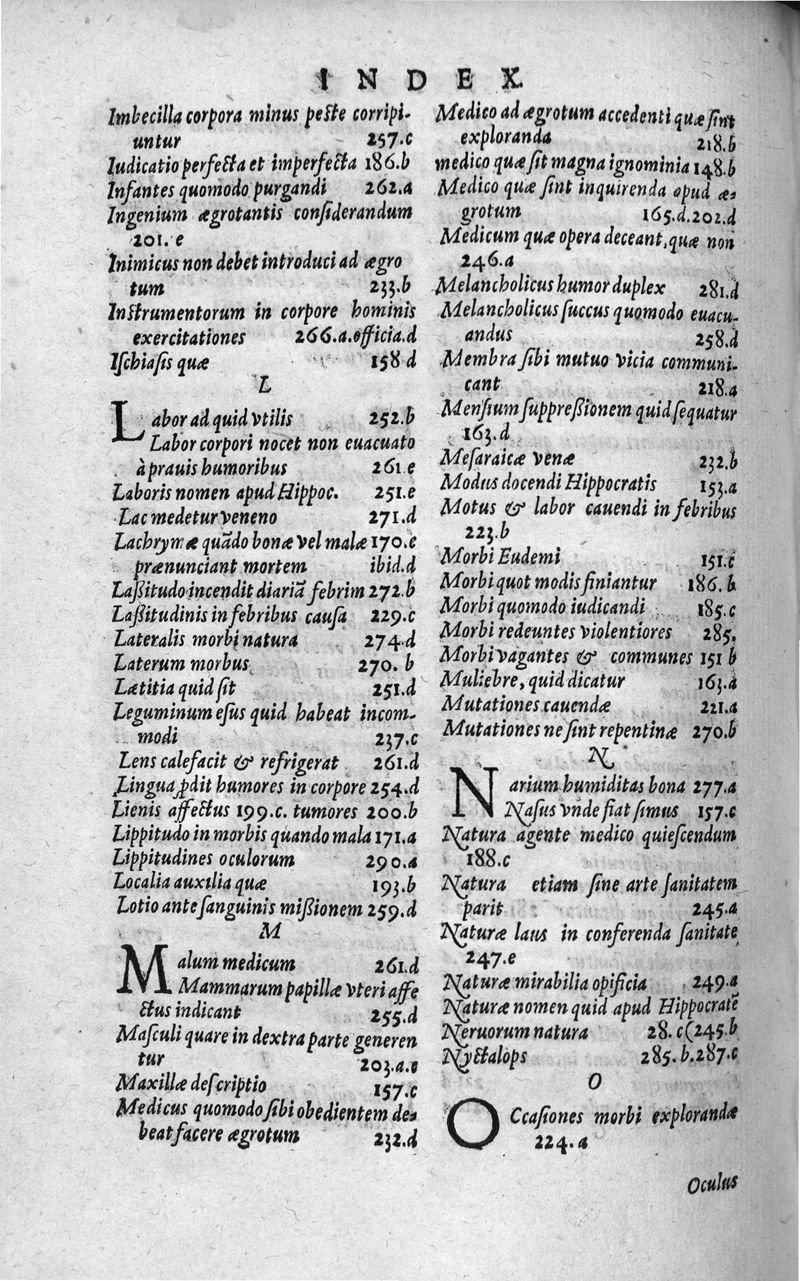 INDEX
Imbecilla corpora minus peste corripi-
untur 257.c
Iudicatio perfecta et imperfecta 186.b
Infantes quomodo purgandi 262.a
Ingenium ægrotantis considerandum
201.e
Inimicus non debet introduci ad ægro
tum 233.b
Instrumentorum in corpore hominis
exercitationes 266.a.officia.d
Ischiasis quæ 158 d
L
Labor ad quid vtilis 252.b
Labor corpori nocet non euacuato
à prauis humoribus 261 e
Laboris nomen apud Hippoc. 251.e
Lac medetur veneno 271.d
Lachrymæ quādo bonæ vel malæ 170.c
prænunciant mortem ibid.d
Laſsitudo incendit diariā febrim 272.b
Laſsitudinis in febribus causa 229.c
Lateralis morbi natura 274.d
Laterum morbus 270. b
Lætitia quid sit 251.d
Leguminum esus quid habeat incom-
modi 237.c
Lens calefacit & refrigerat 261.d
Lingua ꝓdit humores in corpore 254.d
Lienis affectus 199.c. tumores 200.b
Lippitudo in morbis quando mala 171.a
Lippitudines oculorum 290.a
Localia auxilia quæ 193.b
Lotio ante sanguinis mißionem 259.d
M
Malum medicum 261.d
Mammarum papillæ vteri affe
ctus indicant 255.d
Masculi quare in dextra parte generen
tur 203.a.e
Maxillæ descriptio 157.c
Medicus quomodo sibi obedientem de-
beat facere ægrotum 232.d
Medico ad ægrotum accedenti quæ sint
exploranda 218.b
medico quæ sit magna ignominia 148.b
Medico quæ sint inquirenda apud æ-
grotum 165.d.202.d
Medicum quæ opera deceant, quæ non
246.a
Melancholicus humor duplex 281.d
Melancholicus succus quomodo euacu-
andus 258.d
Membra sibi mutuo vicia communi-
cant 218.a
Mensium suppreßionem quid sequatur
163.d
Mesaraicæ venæ 232.b
Modus docendi Hippocratis 153.a
Motus & labor cauendi in febribus
223.b
Morbi Eudemi 151.c
Morbi quot modis finiantur 186.b
Morbi quomodo iudicandi 185.c
Morbi redeuntes violentiores 285.
Morbi vagantes & communes 151 b
Muliebre, quid dicatur 163.a
Mutationes cauendæ 221.a
Mutationes ne sint repentinæ 270.b
N
Narium humiditas bona 277.a
Nasus vnde fiat simus 157.c
Natura agente medico quiescendum
188.c
Natura etiam sine arte sanitatem
parit 245.a
Naturæ laus in conferenda sanitate
247.e
Naturæ mirabilia opificia 249.a
Naturæ nomen quid apud Hippocratē
Neruorum natura 28. c(245.b
Nyctalops 285.b.287.c
O
Occasiones morbi explorandæ
224.a
Oculus